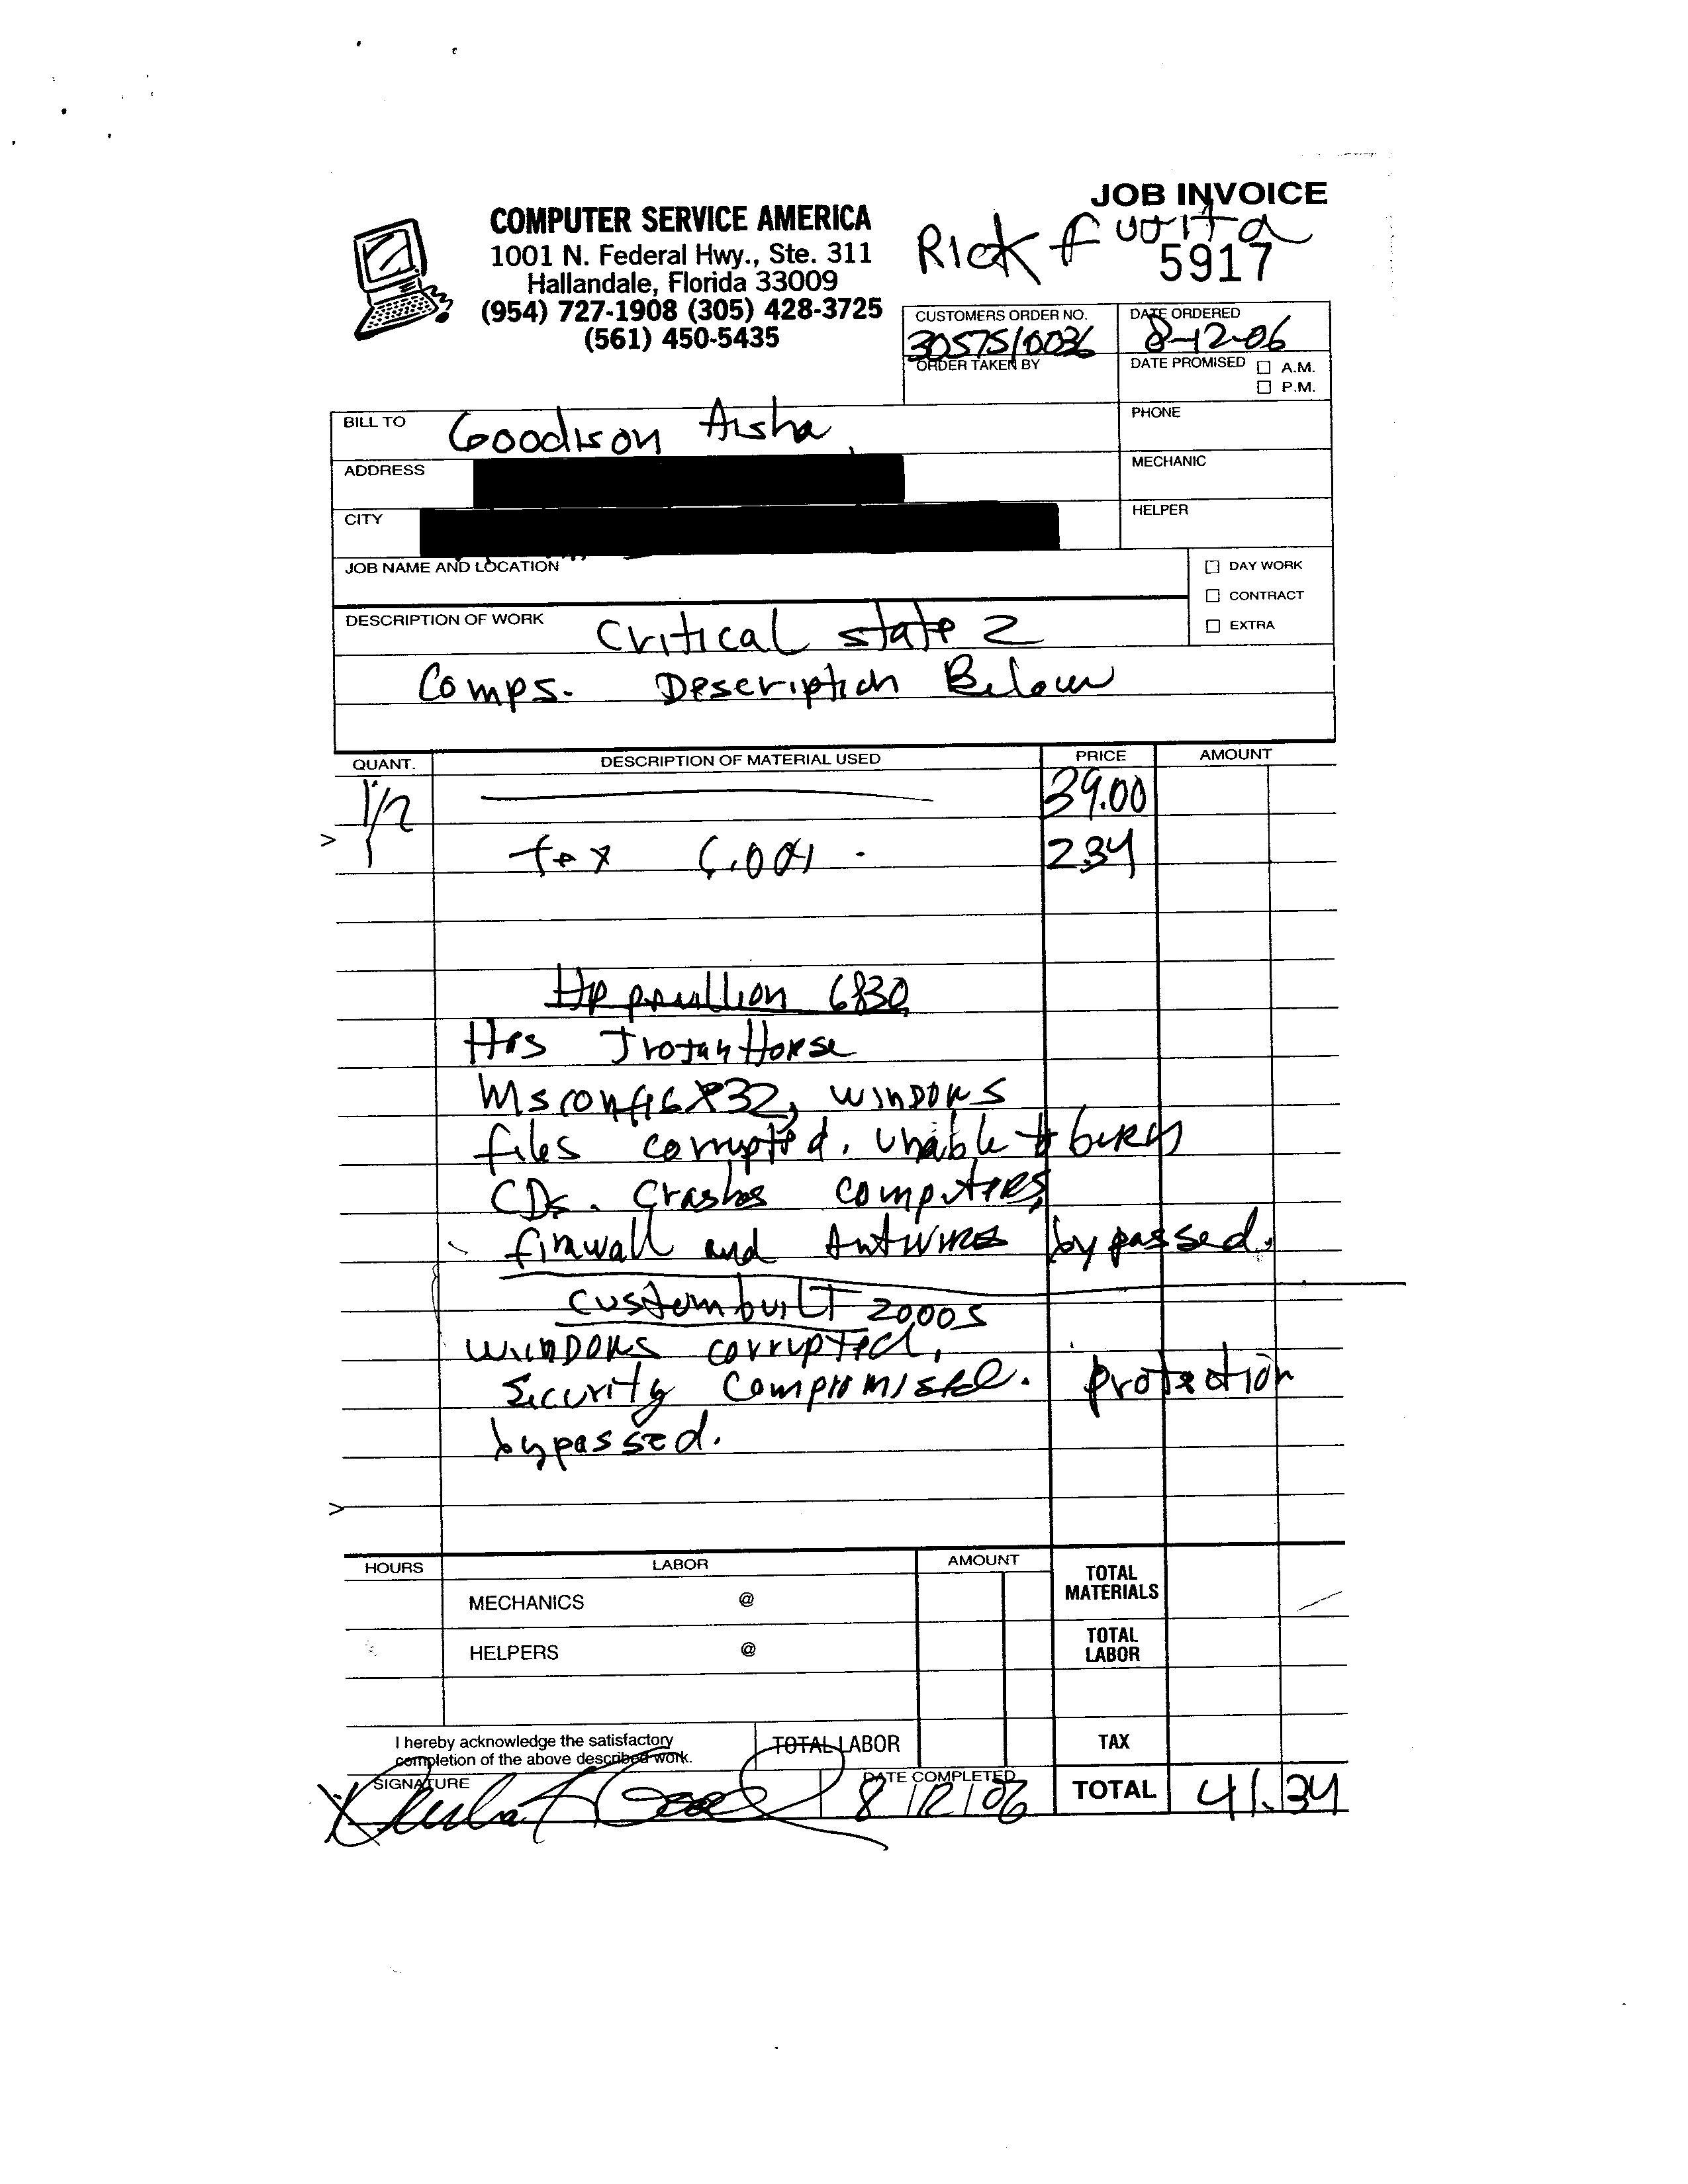 JOB INVOICE
COMPUTER SERVICE AMERICA
1001 N. Federal Hwy., Ste. 311
Hallandale, Florida 33009
(954) 727-1908 (305) 428-3725
(561) 450-5435
Rick
5917
CUSTOMERS ORDER NO.
3057510036
DATE ORDERED
8-12-06
ORDER TAKEN BY
DATE PROMISED
A.M.
P.M.
BILL TO Goodison Aisha
PHONE
ADDRESS
MECHANIC
CITY
HELPER
JOB NAME AND LOCATION
DAY WORK
CONTRACT
EXTRA
DESCRIPTION OF WORK Critical state 2
Comps. Description Below
QUANT. DESCRIPTION OF MATERIAL USED PRICE AMOUNT
1/2 39.00
tax 2.34
Hp pavillion 6830
Has Trojan Horse
Msconfig X32, WINDOWS
files corrupted. Unable to burn
CDs. Crashes computers,
firewall and Antivires bypassed.
custom built 2000s
WINDOWS corrupted,
Security Compromised. protection
bypassed.
HOURS LABOR AMOUNT
MECHANICS @
TOTAL MATERIALS
HELPERS @
TOTAL LABOR
I hereby acknowledge the satisfactory
completion of the above described work.
TOTAL LABOR
TAX
SIGNATURE
DATE COMPLETED
8/12/06
TOTAL 41.34